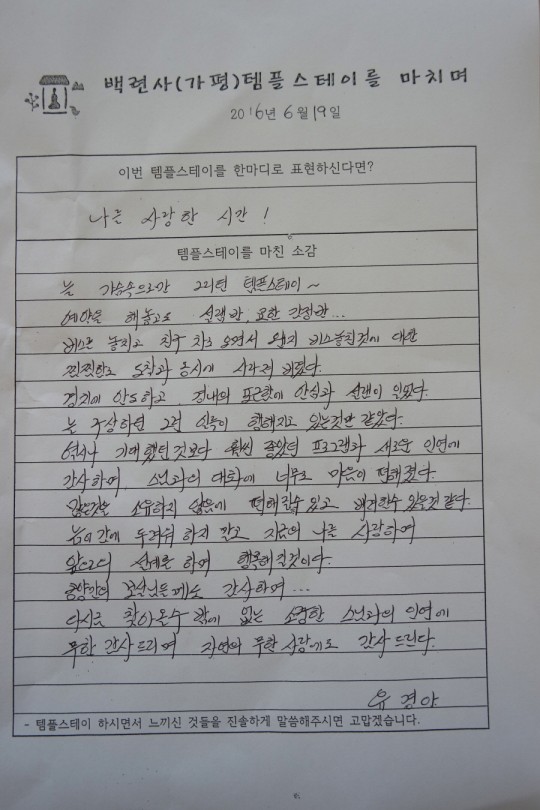 백련사(가평)템플스테이를 마치며
2016년 6월 19일
이번 템플스테이를 한마디로 표현하신다면?
나를 사랑한 시간!
템플스테이를 마친 소감
늘 가슴속으로만 그리던 템플스테이~
예약을 해놓고도 설렘반, 묘한 긴장반...
버스를 놓치고 친구 차로 오면서 왠지 버스놓친것에 대한
찝찝함도 도착과 동시에 사라져 버렸다.
경치에 안도하고, 경내의 포근함에 안심과 설렘이 일었다.
늘 구상하던 그런 일들이 행해지고 있는것만 같았다.
역시나 기대했던것보다 훨씬 좋았던 프로그램과 새로운 인연에
감사하며, 스님과의 대화에 너무도 마음이 편해졌다.
많은것을 소유하지 않음에 편해질수 있고 배려할수 있을것 같다.
늙어감에 두려워 하지 않고 지금의 나를 사랑하며
앞으로의 설계를 하며 행복해질것이다.
공양간의 보살님들께도 감사하며...
다시금 찾아올수 밖에 없는 소중한 스님과의 인연에
무한 감사드리며 자연의 무한 사랑에도 감사 드린다.
유경아
- 템플스테이 하시면서 느끼신 것들을 진솔하게 말씀해주시면 고맙겠습니다.